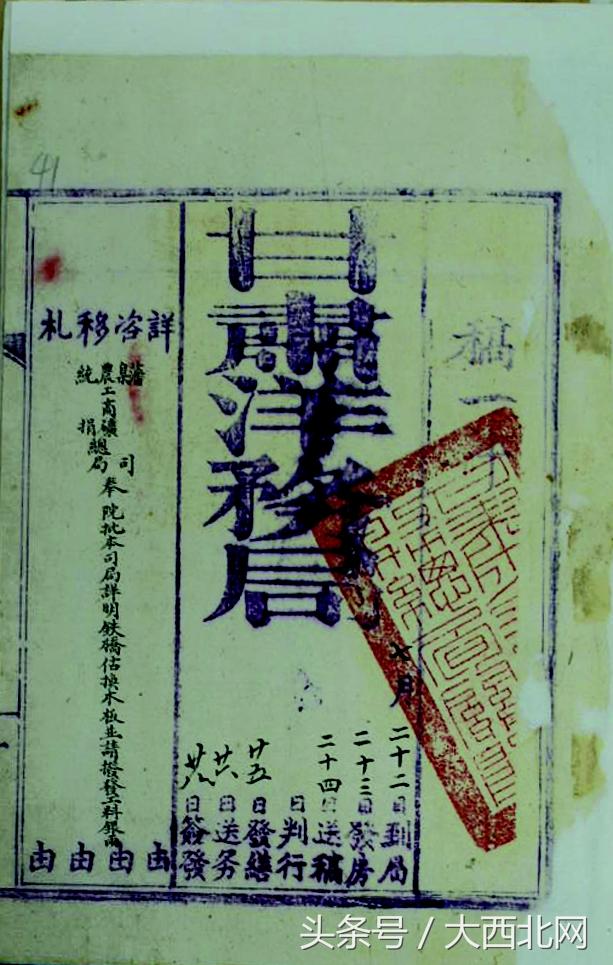 41
稿一
甘肅洋務局
七月
二十二日到局
二十三日發房
二十四日送稿
日判行
廿五日發繕
廿六日送
日簽發
詳咨移札
藩臬司
農工商礦總局
統捐
奉院批本司局詳明鉄橋估換木板並請撥發工料銀兩
由由由由
头条号／大西北网